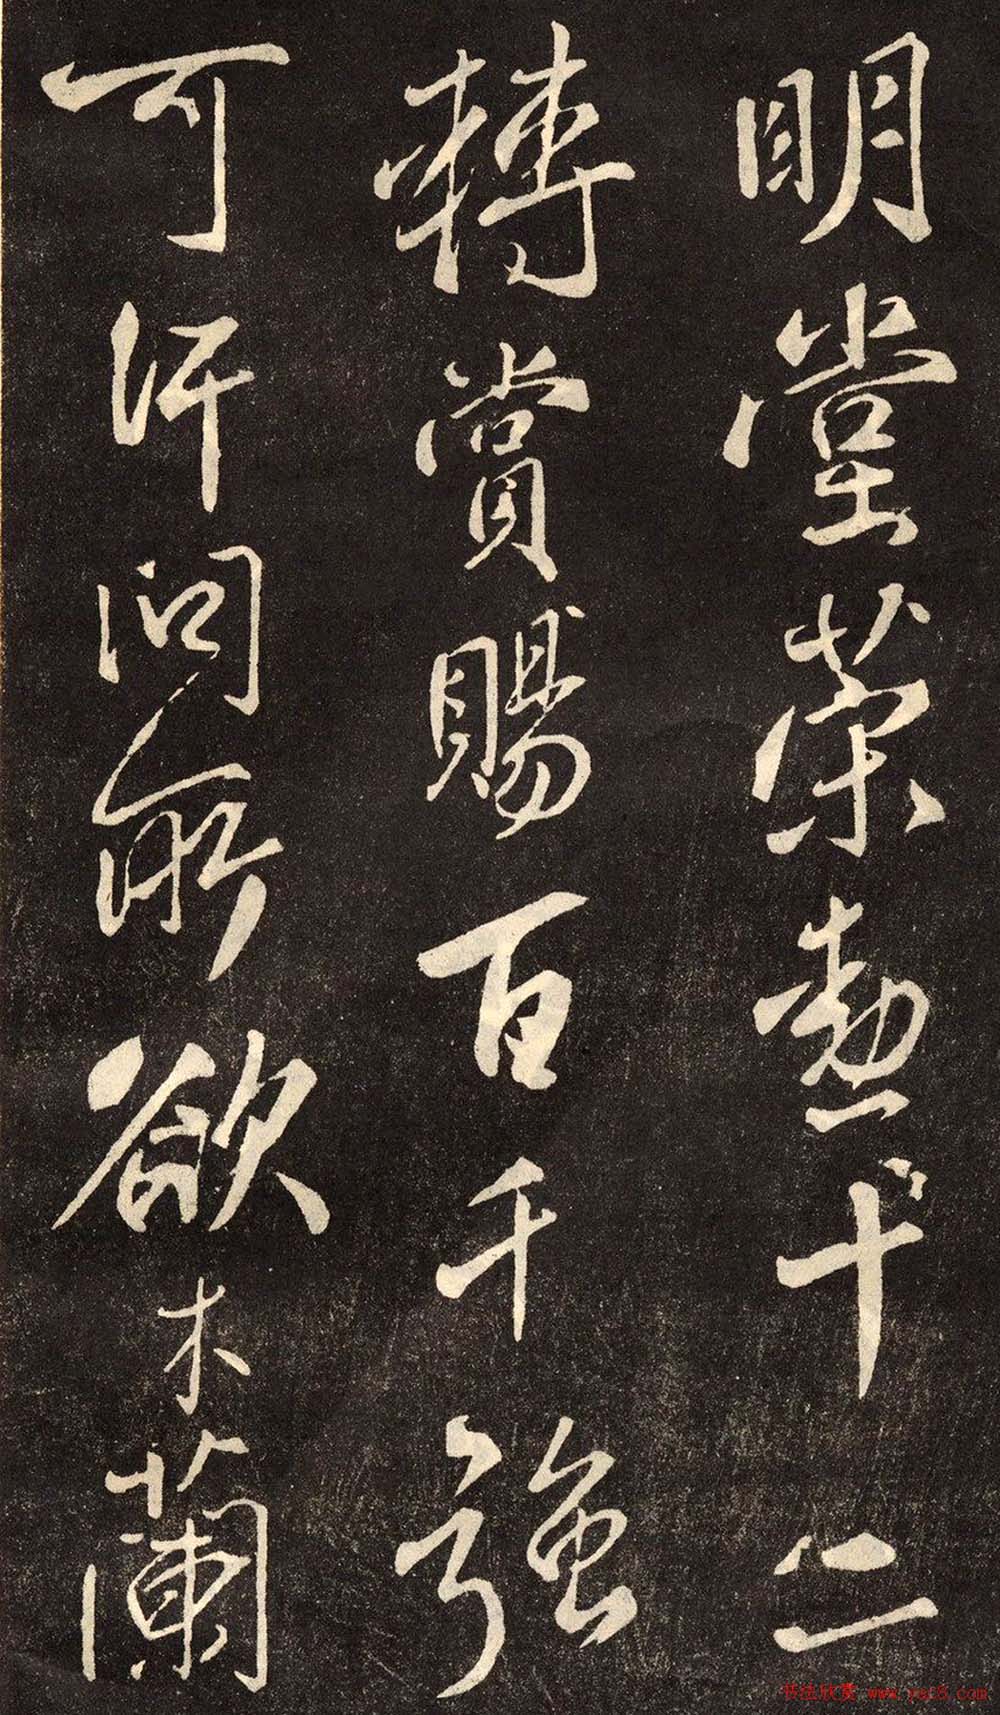 明堂策勳十二
轉賞賜百千強
可汗問所欲木蘭
书法欣赏 www.yac8.com